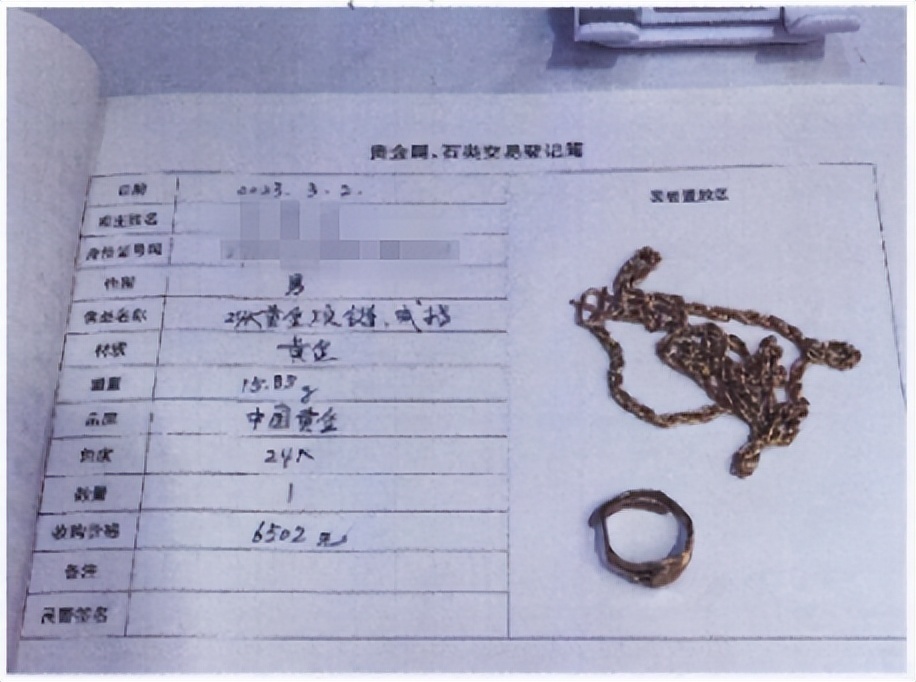 贵金属、石类交易登记簿
日期 2023.3.2.
姓名
身份证号码
性别 男
24K黄金项链、戒指
材质 黄金
重量 15.83g
品牌 中国黄金
纯度 24K
数量 1
收购价格 6502元
备注
民警签名